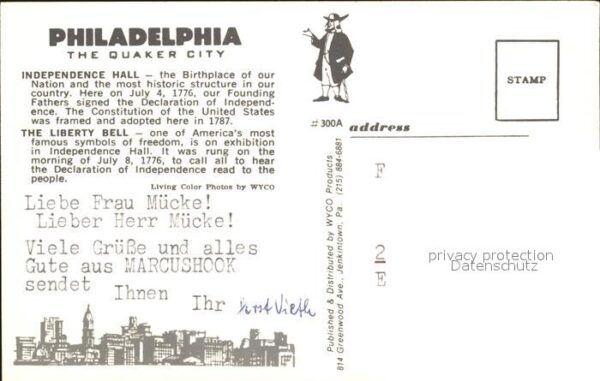 PHILADELPHIA
THE QUAKER CITY
INDEPENDENCE HALL — the Birthplace of our
Nation and the most historic structure in our
country. Here on July 4, 1776, our Founding
Fathers signed the Declaration of Independ-
ence. The Constitution of the United States
was framed and adopted here in 1787.
THE LIBERTY BELL — one of America's most
famous symbols of freedom, is on exhibition
in Independence Hall. It was rung on the
morning of July 8, 1776, to call all to hear
the Declaration of Independence read to the
people.
Living Color Photos by WYCO
Liebe Frau Mücke!
Lieber Herr Mücke!
Viele Grüße und alles
Gute aus MARCUSHOOK
sendet
Ihnen
Ihr
#300A
Published & Distributed by WYCO Products
814 Greenwood Ave., Jenkintown, Pa. (215) 884-6881
STAMP
address
F
2
E
privacy protection
Datenschutz